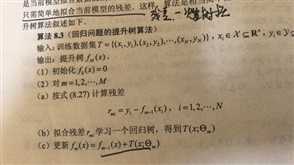 是当前模型
只需简单地拟合当前模型的残差。这样，算法是相当
升树算法叙述如下.
算法 8.3（回归问题的提升树算法）
输入: 训练数据集 T = {(x₁, y₁), (x₂, y₂), ⋯, (x_N, y_N)}, xᵢ ∈ X ⊆ Rⁿ, yᵢ ∈
输出: 提升树 f_M(x).
（1）初始化 f₀(x) = 0
（2）对 m = 1, 2, ⋯, M
（a）按式 (8.27) 计算残差
r_mi = yᵢ − f_{m−1}(xᵢ), i = 1, 2, ⋯, N
（b）拟合残差 r_mi 学习一个回归树，得到 T(x; Θ_m)
（c）更新 f_m(x) = f_{m−1}(x) + T(x; Θ_m)